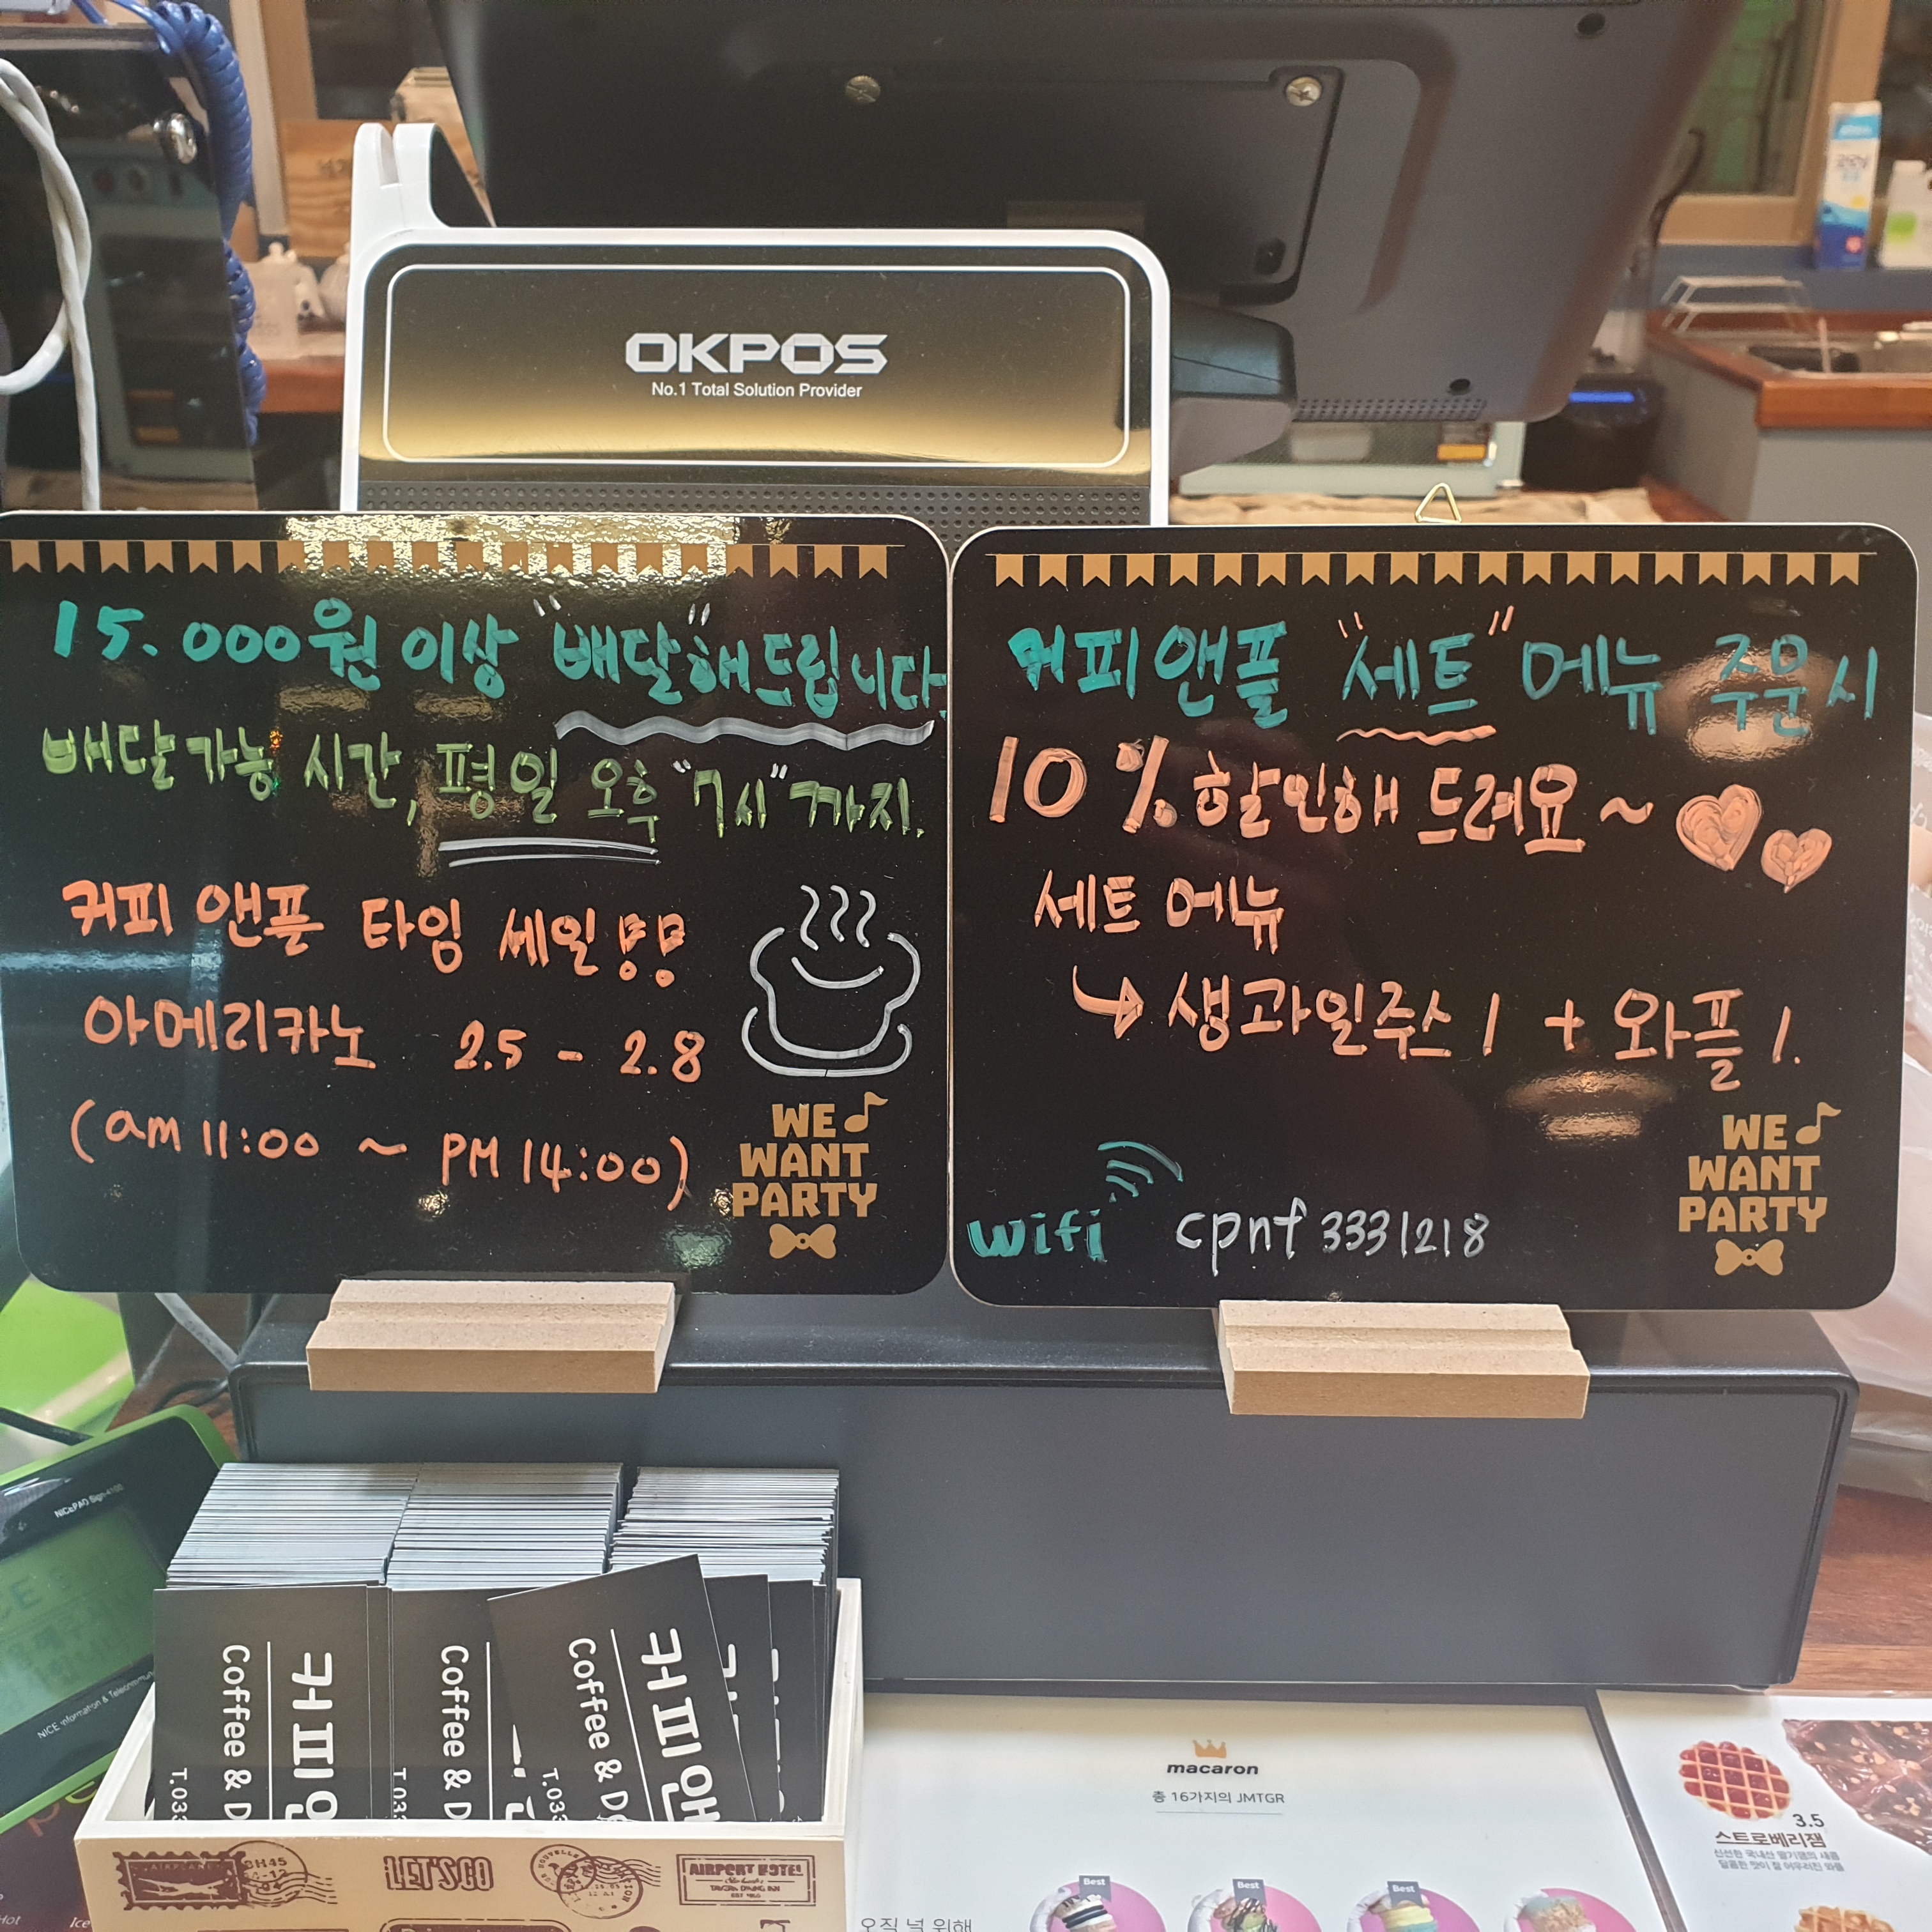 OKPOS
No.1 Total Solution Provider
15.000원 이상 "배달"해드립니다.
배달가능 시간, 평일 오후 "7시"까지.
커피 앤플 타임 세일!!
아메리카노 2.5 - 2.8
(am 11:00 ~ PM 14:00)
WE
WANT
PARTY
커피앤플 "세트" 메뉴 주문시
10%할인해드려요~
세트 메뉴
생과일주스 1 + 와플 1.
wifi cpnf 3331218
WE
WANT
PARTY
NICE Information &
커피
Coffee & D
T.033
Coffee & D
T.033
커피앤
Coffee & D
T.033
LET'S GO
AIRPORT HOTEL
macaron
총 16가지의 JMTGR
Best
Best
Best
오직 널 위해
3.5
스트로베리잼
Hot
Ice